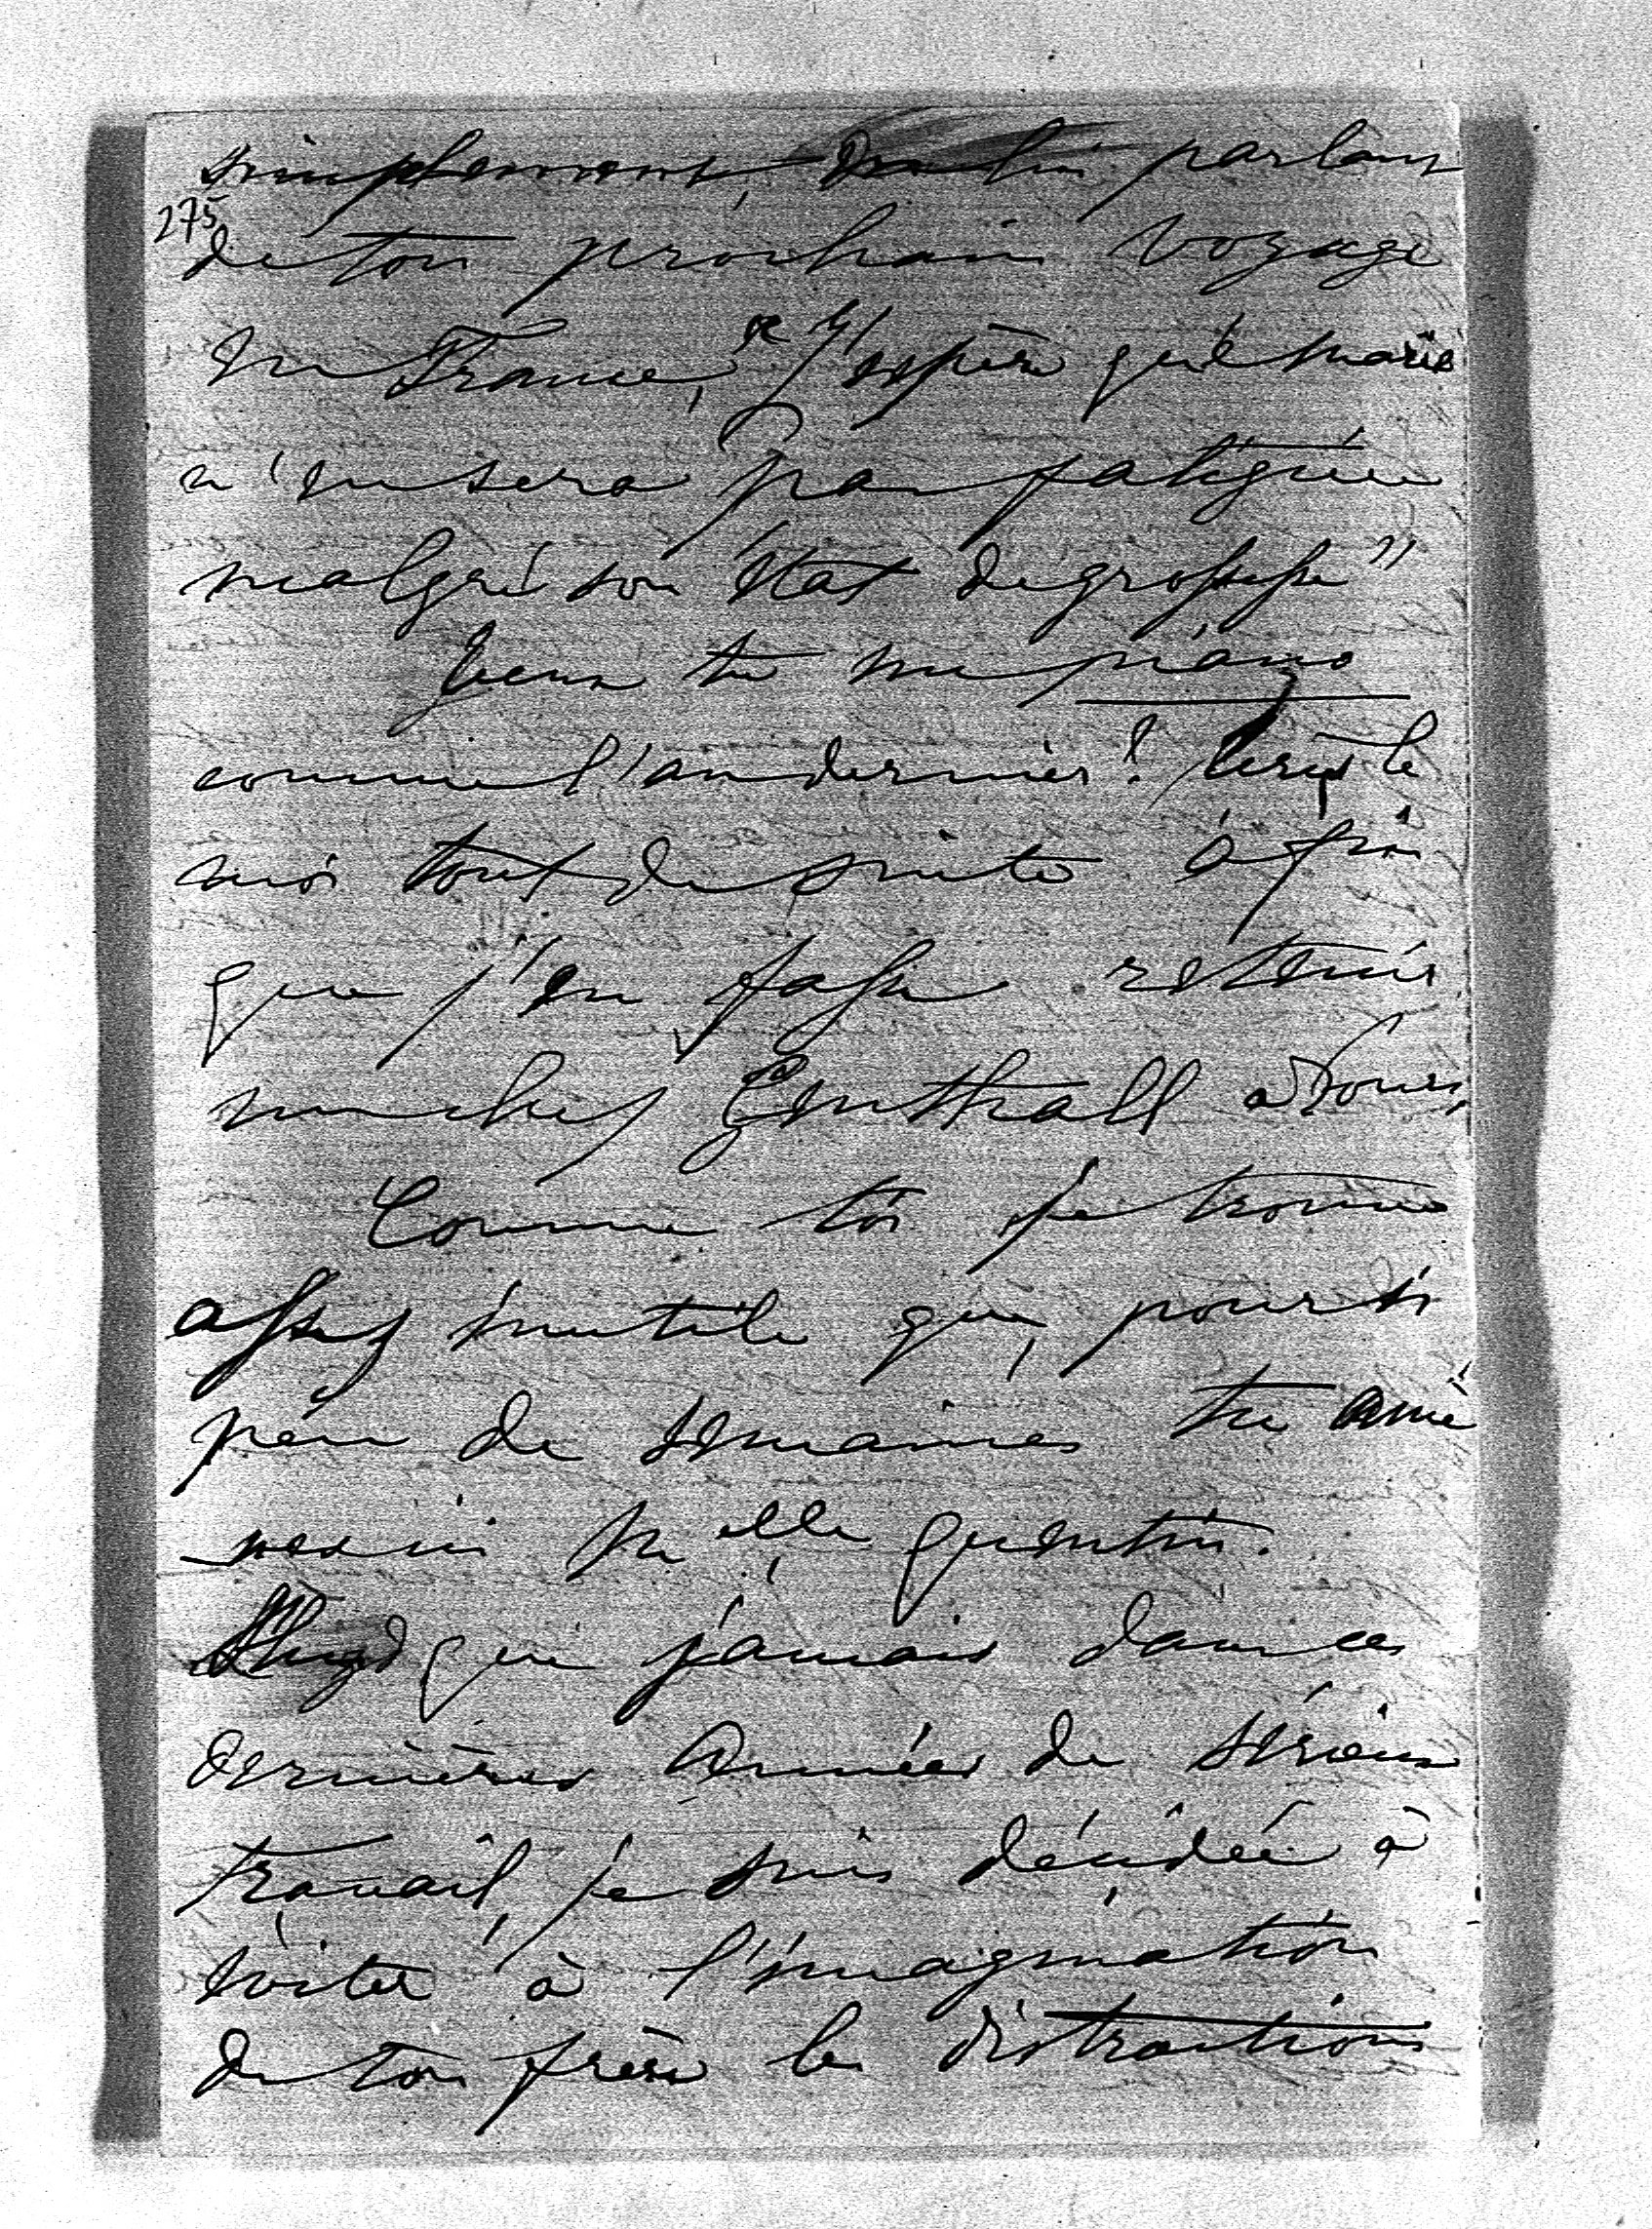 simplement, en lui parlant
275
de ton prochain voyage
en France, "J'espère que Marie
n'en sera pas fatiguée
malgré son état de grossesse"
Veux tu un piano
comme l'an dernier? Écris le
moi tout de suite afin
que j'en fasse retenir
un chez à Tours,
Comme toi je trouve
assez inutile que, pour si
peu de semaines tu amè
nes ici Melle Quentin.
Plus que jamais dans ces
dernières années de sérieux
travail, je suis décidée à
éviter à l'imagination
de ton frère les distractions